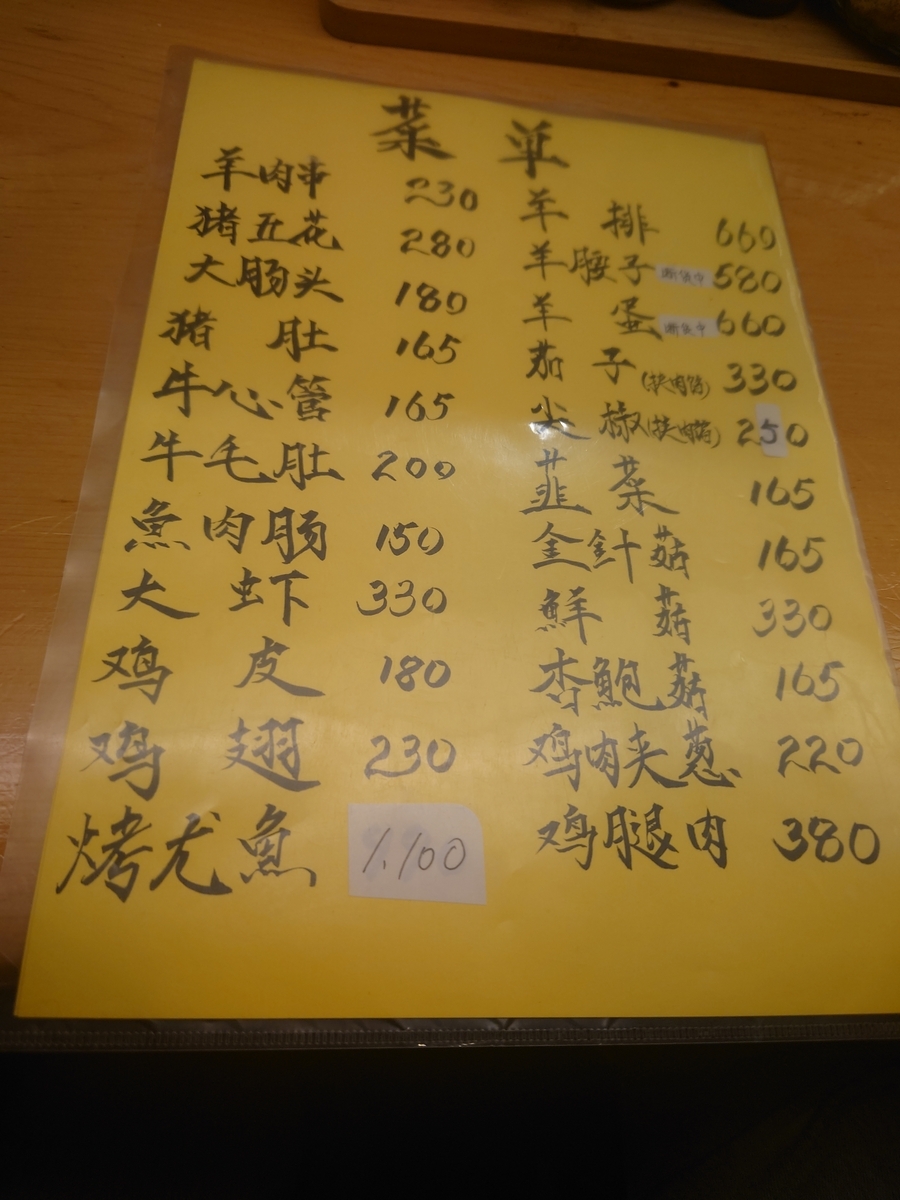 菜 单
羊肉串 230
猪五花 280
大肠头 180
猪肚 165
牛心管 165
牛毛肚 200
魚肉肠 150
大虾 330
鸡皮 180
鸡翅 230
烤尤魚 1.100
羊排 660
羊腰子 断货中 580
羊蛋 断货中 660
茄子 330
尖椒 250
韮菜 165
金針菇 165
鮮菇 330
杏鮑菇 165
鸡肉夹葱 220
鸡腿肉 380